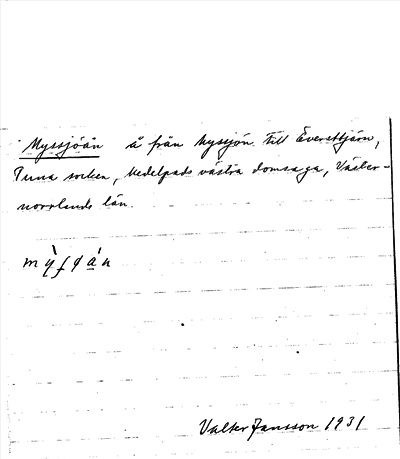 Myssjöån å från Myssjön till Översttjärn,
Tuna socken, Medelpads västra domsaga, Väster-
norrlands län.
Valter Jansson 1931